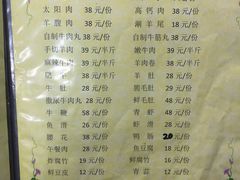 太阳肉 38元/份 高钙肉 38元/份
羊腹肉 38元/份 涮羊尾 18元/份
自制牛肉丸 38元/份 自制牛筋丸 38元/份
手切羊肉 39元/半斤 嫩牛肉 39元/半斤
麻辣牛肉 39元/半斤 羊肉卷 38元/份
牛肚 28元/份 羊肚 28元/份
牛肚 28元/份 腰毛肚 28元/份
撒尿牛肉丸 28元/份 鲜毛肚 28元/份
牛鞭 58元/份 青虾 48元/份
鱼滑 28元/份 虾滑 28元/份
腰花 38元/份 鸭肠 20元/份
午餐肉 28元/份 鱼豆腐 18元/份
炸腐竹 12元/份 鲜腐竹 16元/份
鲜豆皮 12元/份 青蒜 12元/份